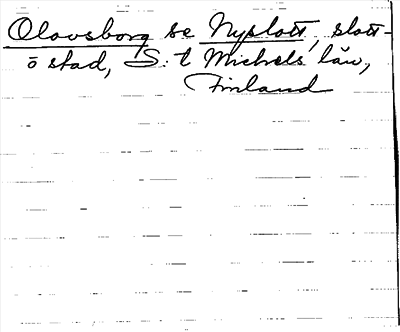 Olovsborg se Nyslott, slott-
o stad, S:t Michels län,
Finland